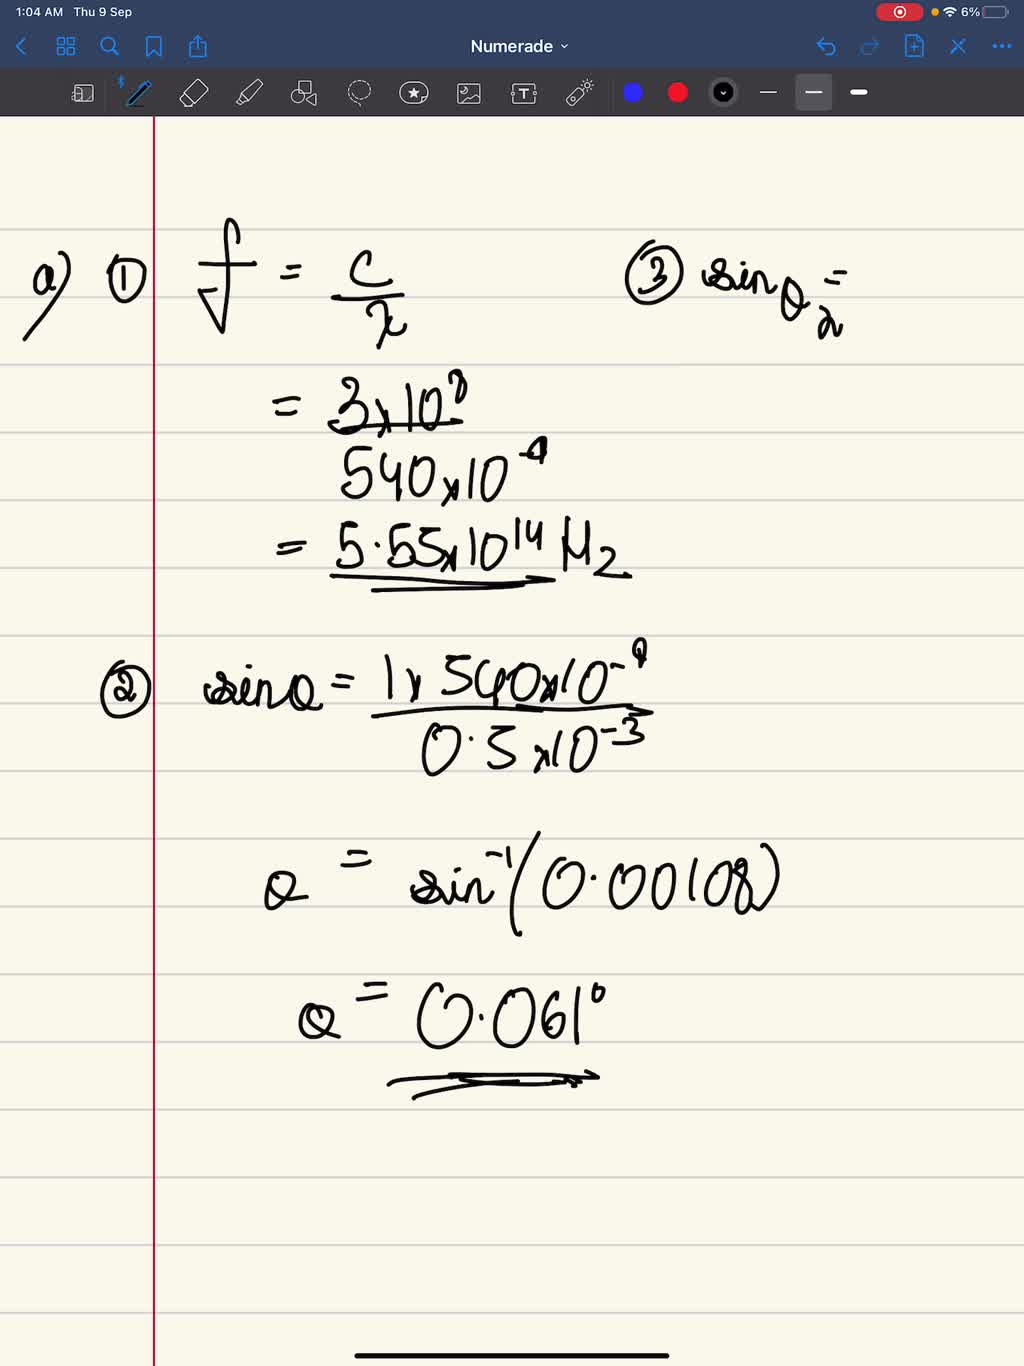 1:04 AM Thu 9 Sep 6%
Numerade
a) ① f = c/λ
= 3×10⁸
540×10⁻⁹
= 5.55×10¹⁴ Hz
② sinθ = 1×540×10⁻⁹
0.5×10⁻³
θ = sin⁻¹(0.00108)
θ = 0.061°
③ sinθ₂ =